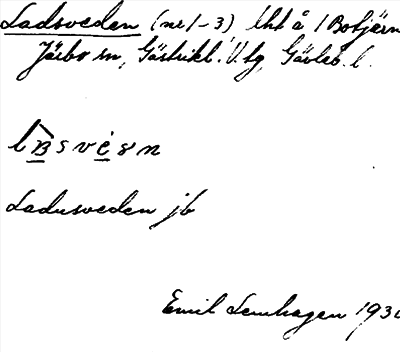 Ladsveden (nr 1-3) lht å 1 Botjärn
Järbo sn, Gästrikl. V. tg, Gävleb. l.
Ladusveden jb
Emil Lenhagen 193